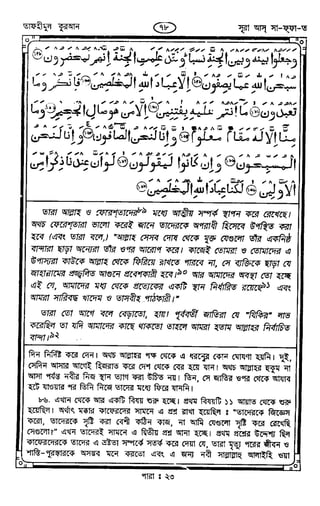 তাফহীমুল কুরআন
৭৮
সূরা আস্ সা-ফ্ফা-ত
وَجَعَلُوا بَيْنَهُ وَبَيْنَ الْجِنَّةِ نَسَبًا وَلَقَدْ عَلِمَتِ الْجِنَّةُ إِنَّهُمْ لَمُحْضَرُونَ
سُبْحٰنَ اللهِ عَمَّا يَصِفُونَ إِلَّا عِبَادَ اللهِ الْمُخْلَصِينَ فَإِنَّكُمْ وَمَا
تَعْبُدُونَ مَا أَنْتُمْ عَلَيْهِ بِفٰتِنِينَ إِلَّا مَنْ هُوَ صَالِ الْجَحِيمِ وَمَا
مِنَّا إِلَّا لَهُ مَقَامٌ مَعْلُومٌ وَإِنَّا لَنَحْنُ الصَّافُّونَ وَإِنَّا لَنَحْنُ
الْمُسَبِّحُونَ وَإِنْ كَانُوا لَيَقُولُونَ لَوْ أَنَّ عِنْدَنَا ذِكْرًا مِنَ
الْأَوَّلِينَ لَكُنَّا عِبَادَ اللهِ الْمُخْلَصِينَ
তারা আল্লাহ ও ফেরেশ্তাদের৮৯ মধ্যে আত্মীয় সম্পর্ক স্থাপন করে রেখেছে।
অথচ ফেরেশ্তারা ভালো করেই জানে তাদেরকে অপরাধী হিসেবে উপস্থিত করা
হবে (এবং তারা বলে,) "আল্লাহ সেসব দোষ থেকে মুক্ত যেগুলো তাঁর একনিষ্ঠ
বান্দারা ছাড়া অন্যেরা তাঁর ওপর আরোপ করে। কাজেই তোমরা ও তোমাদের এ
উপাস্যরা কাউকে আল্লাহ থেকে ফিরিয়ে রাখতে পারবে না, সে ব্যক্তিকে ছাড়া যে
জাহান্নামের প্রজ্জ্বলিত আগুনে প্রবেশকারী হবে।৯০ আর আমাদের অবস্থা তো হচ্ছে
এই যে, আমাদের মধ্য থেকে প্রত্যেকের একটি স্থান নির্ধারিত রয়েছে৯১ এবং
আমরা সারিবদ্ধ খাদেম ও তাসবীহ পাঠকারী।"
তারা তো আগে বলে বেড়াতো, হায়! পূর্ববর্তী জাতিরা যে "যিকির" লাভ
করেছিল তা যদি আমাদের কাছে থাকতো তাহলে আমরা হতাম আল্লাহর নির্বাচিত
বান্দা।৯২
দিন নির্দিষ্ট করে দেন। অথচ আল্লাহর পক্ষ থেকে এ ধরনের কোন ঘোষণা হয়নি। দুই,
সেদিন আসার আগেই হিজরাত করে দেশ থেকে বের হয়ে যান। অথচ আল্লাহর হুকুম না
আসা পর্যন্ত নবীর নিজ স্থান ত্যাগ করা উচিত নয়। তিন, সে জাতির ওপর থেকে আযাব
হটে যাওয়ার পর তিনি নিজে তাদের মধ্যে ফিরে যাননি।
৮৬. এখান থেকে আর একটি বিষয় শুরু হচ্ছে। প্রথম বিষয়টি ১১ আয়াত থেকে শুরু
হয়েছিল। অর্থাৎ মক্কার কাফেরদের সামনে এ প্রশ্ন রাখা হয়েছিল : "তাদেরকে জিজ্ঞেস
করো, তাদেরকে সৃষ্টি করা বেশী কঠিন কাজ, না আমি যেগুলো সৃষ্টি করে রেখেছি
সেগুলো?" এখন তাদেরই সামনে এ দ্বিতীয় প্রশ্ন আনা হচ্ছে। প্রথম প্রশ্নের উদ্দেশ্য ছিল
কাফেরদেরকে তাদের এ ভ্রষ্টতা সম্পর্কে সতর্ক করে দেয়া যে, তারা মৃত্যু পরের জীবন ও
শাস্তি-পুরস্কারকে অসম্ভব মনে করতো এবং এ জন্য নবী সাল্লাল্লাহু আলাইহি ওয়া
পারা : ২৩